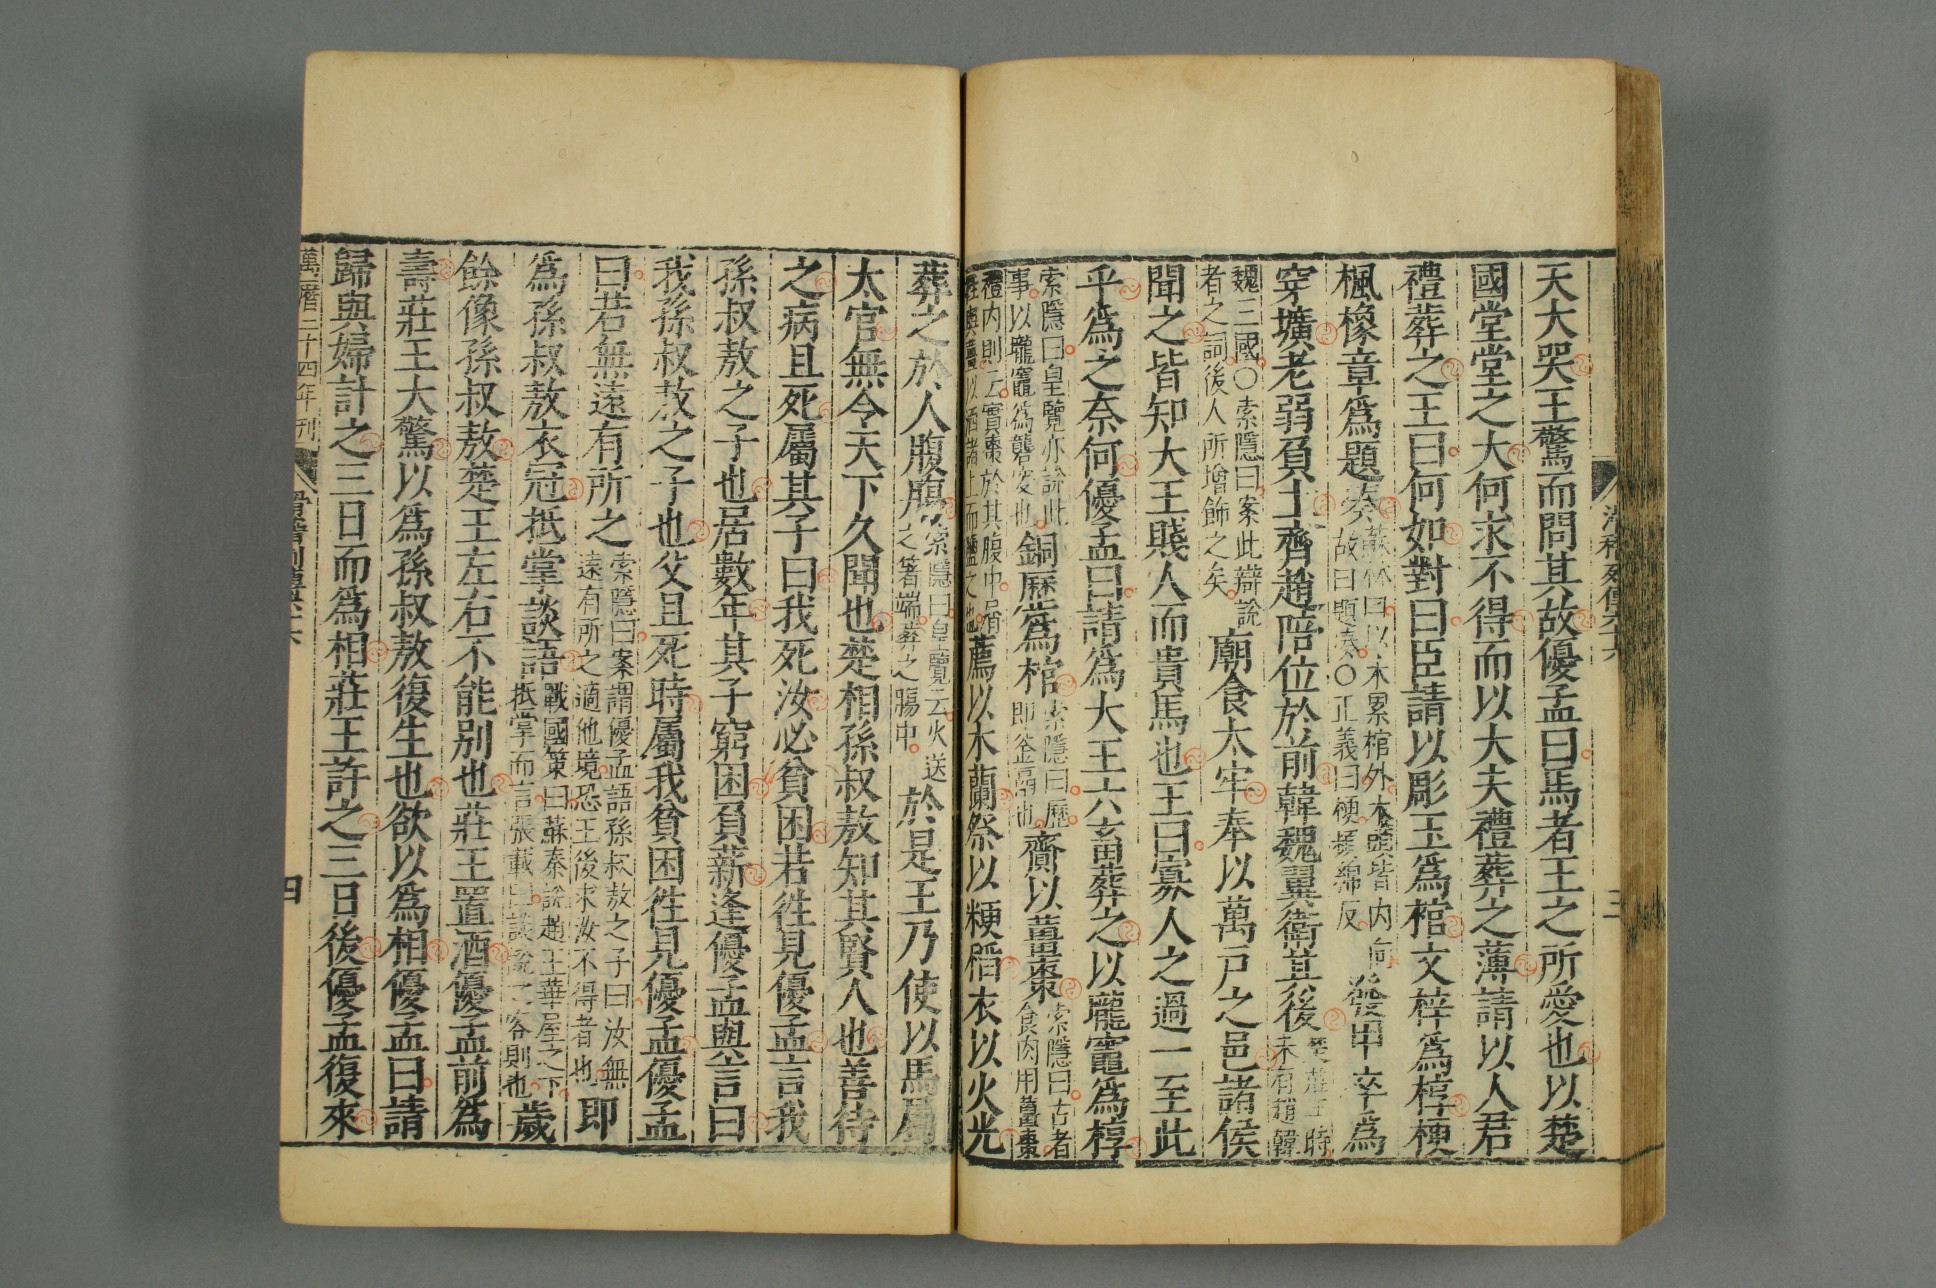 天大哭王驚而問其故優孟曰馬者王之所愛也以楚
國堂堂之大何求不得而以大夫禮葬之薄請以人君
禮葬之王曰何如對曰臣請以彫玉爲棺文梓爲椁楩
楓橡章爲題湊
蘇林曰以木累棺外木頭皆内向
故曰題湊○正義曰楩頻綿反
發甲卒爲
穿壙老弱負土齊趙陪位於前韓魏翼衛其後
楚莊王時
未有趙韓
魏三國○索隱曰案此辯說
者之詞後人所增飾之矣
廟食太牢奉以萬戸之邑諸侯
聞之皆知大王賤人而貴馬也王曰寡人之過一至此
乎爲之奈何優孟曰請爲大王六畜葬之以壠竈爲椁
索隱曰皇覽亦說此
事以壠竈爲礱突也
銅歷爲棺
索隱曰歷
即釜鬲也
齎以薑棗
索隱曰古者
食肉用薑棗
禮内則云實棗於其腹中屑
桂與薑以洒諸上而鹽之也
薦以木蘭祭以粳稻衣以火光
葬之於人腹腸
索隱曰皇覽云火送
之箸端葬之腸中
於是王乃使以馬屬
太官無令天下久聞也楚相孫叔敖知其賢人也善待
之病且死屬其子曰我死汝必貧困若往見優孟言我
孫叔敖之子也居數年其子窮困負薪逢優孟與言曰
我孫叔敖之子也父且死時屬我貧困往見優孟優孟
曰若無遠有所之
索隱曰案謂優孟語孫叔敖之子曰汝無
遠有所之適他境恐王後求汝不得者也
即
爲孫叔敖衣冠抵掌談語
戰國策曰蘇秦說趙王華屋之下
抵掌而言張載曰談說之容則也
歲
餘像孫叔敖楚王左右不能别也莊王置酒優孟前爲
壽莊王大驚以爲孫叔敖復生也欲以爲相優孟曰請
歸與婦計之三日而爲相莊王許之三日後優孟復來
萬曆二十四年刊
滑稽列傳六十六
四